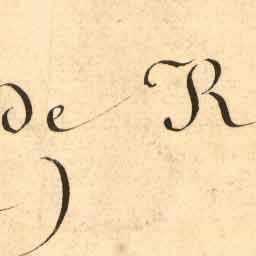 de R
)